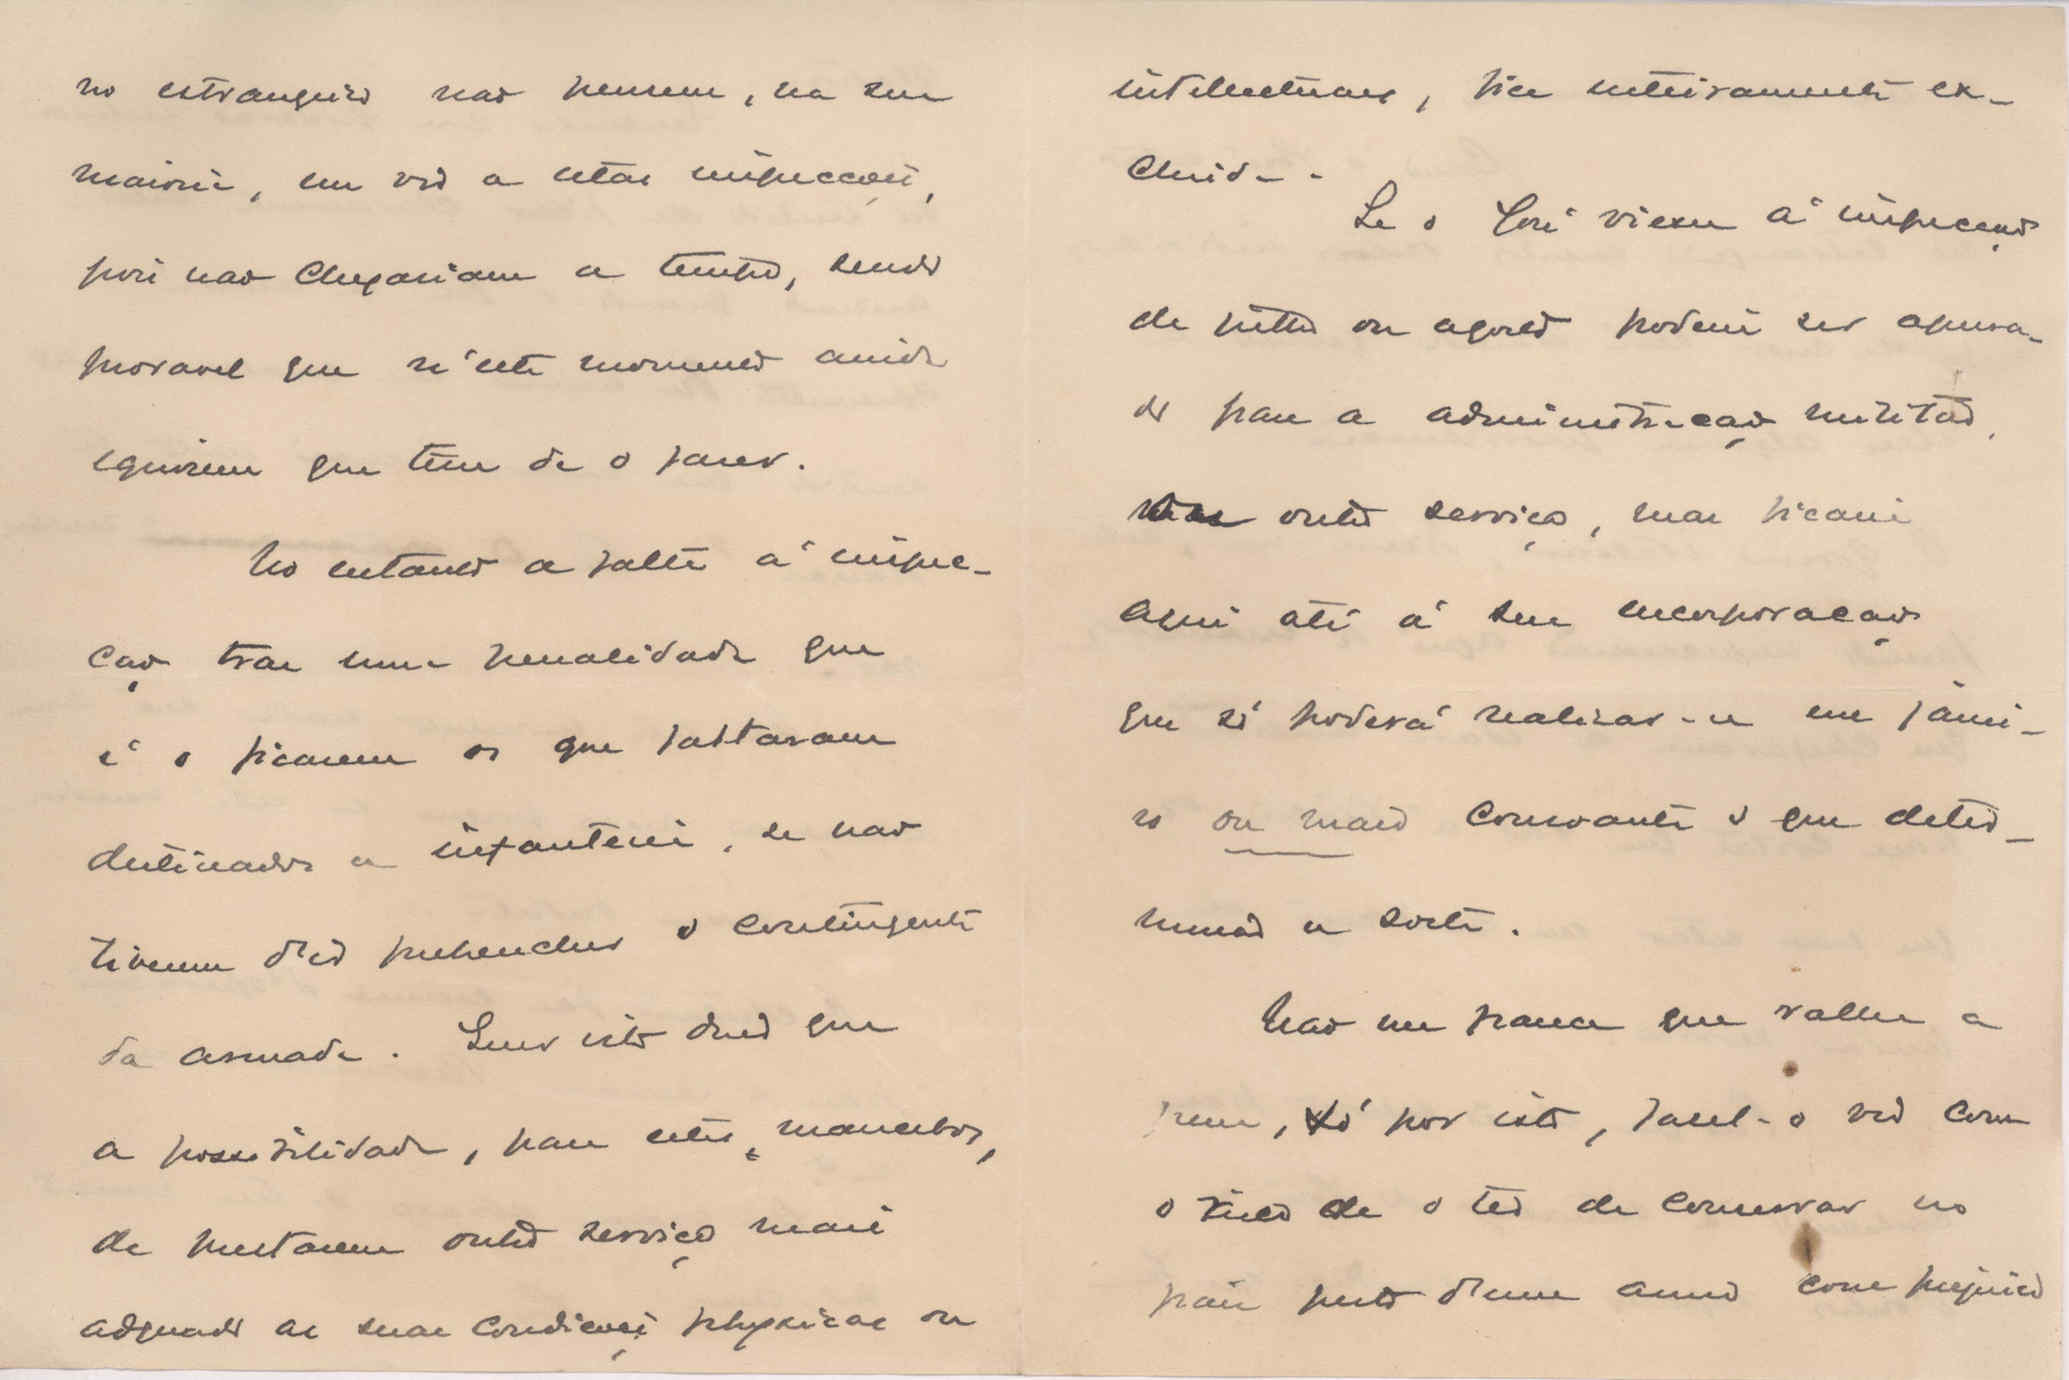 no estrangeiro não pensem, na sua
maioria, em vir a estas inspecções,
pois não chegariam a tempo, sendo
provavel que n'este momento ainda
ignorem que tem de o fazer.
No entanto a falta á inspec-
ção traz uma penalidade que
é o ficarem os que faltaram
destinados a infanteria, se não
tiverem d'ir prehencher o contingente
da armada. Sem isto dred que
a possibilidade, para estes mancebos,
de prestarem outro serviço mais
adquado as suas condições physicas ou
intellectuaes, fica inteiramente ex-
cluida.
Se o José viesse á inspecção
de julho ou agosto poderia ser apura-
do para a administração militar,
outro serviço, mas ficaria
aqui até á sua incorporação
que só poderá realizar-se em janei-
ro ou maio consoante o que deter-
minar a sorte.
Não me parece que valha a
pena, só por isto, fazel-o vir com
o risco de o ter de conservar no
paiz perto d'um anno com prejuizo